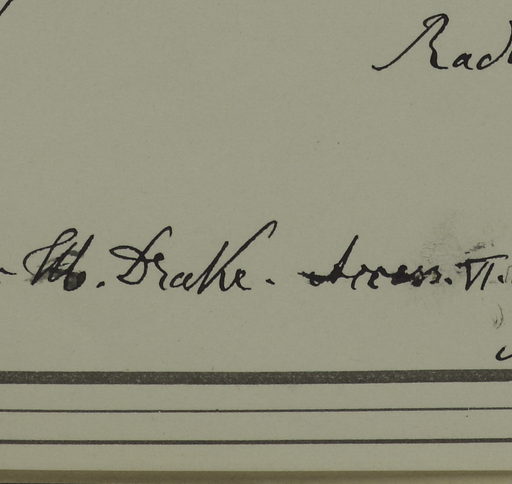 Rad
M. Drake. Access. VI.